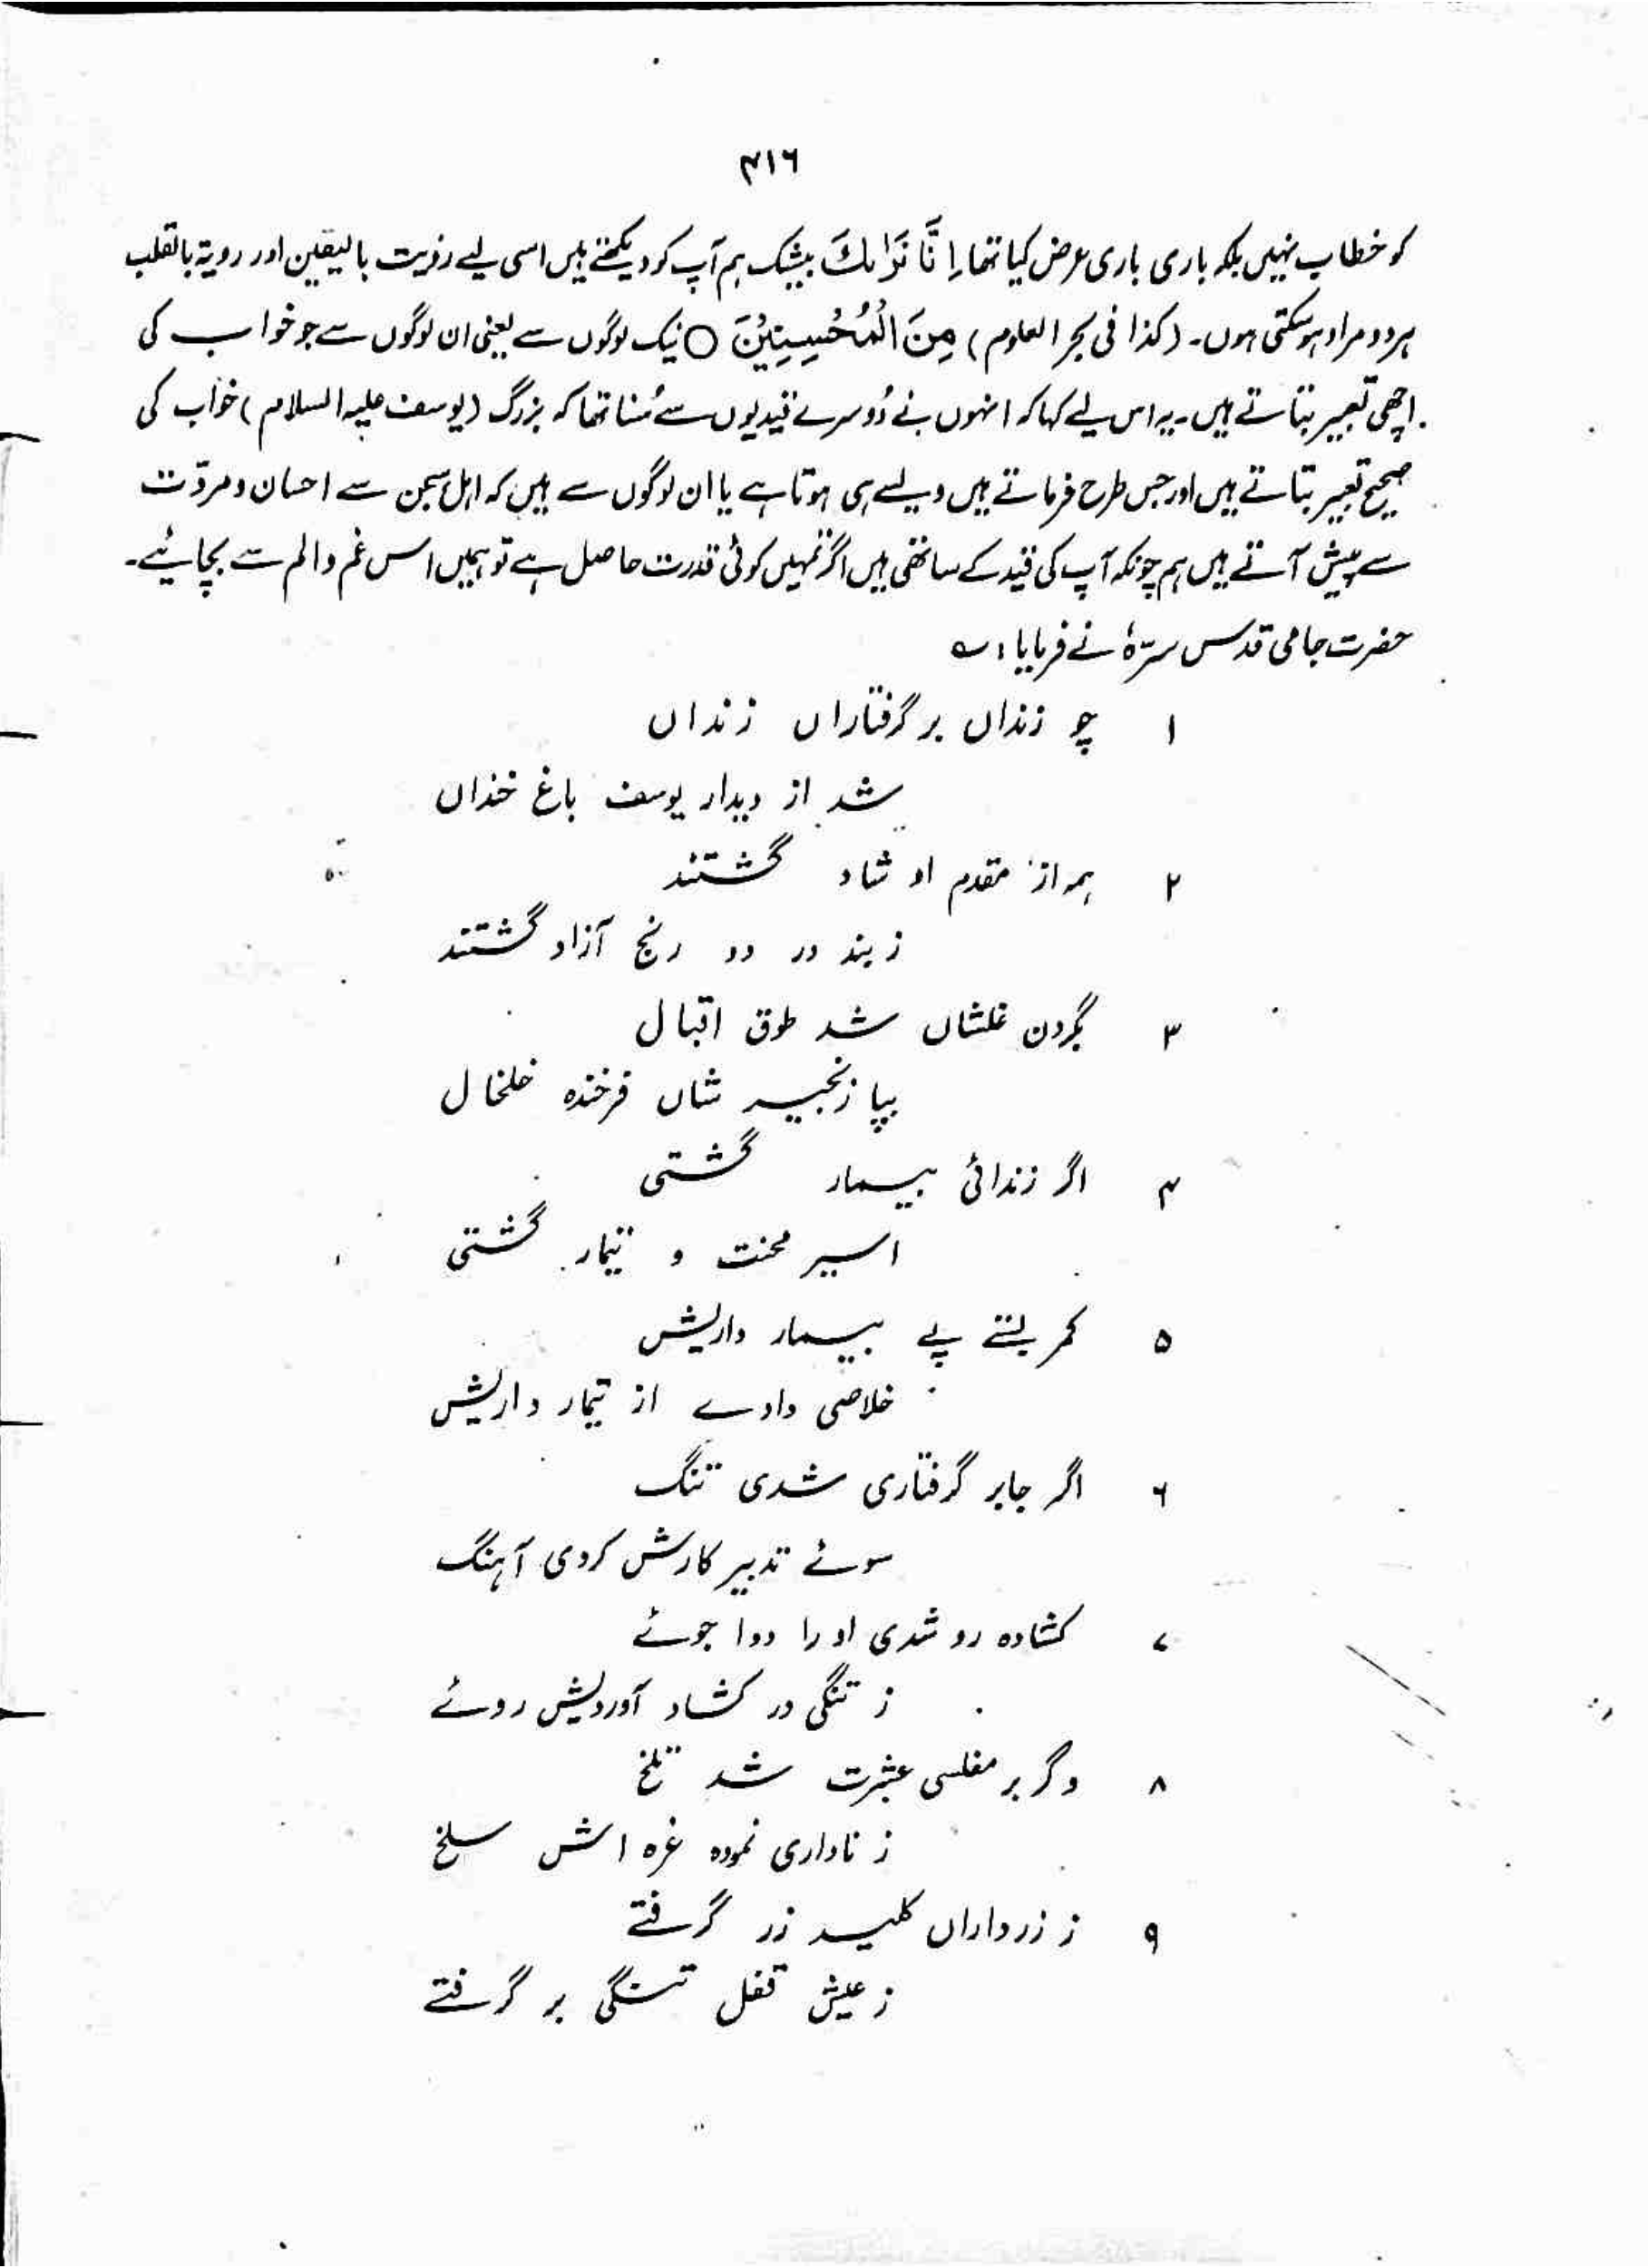 ۴۱۶
کو خطاب نہیں بلکہ باری باری عرض کیا تھا اِنَّا نَرٰىكَ بیشک ہم آپ کو دیکھتے ہیں اسی لیے رؤیت بالیقین اور رویۃ بالقلب
ہر دو مراد ہو سکتی ہوں۔ (کذا فی بحر العلوم) مِنَ الْمُحْسِنِيْنَ ○ نیک لوگوں سے یعنی ان لوگوں سے جو خواب کی
اچھی تعبیر بتاتے ہیں۔ یہ اس لیے کہا کہ انہوں نے دُوسرے قیدیوں سے سُنا تھا کہ بزرگ (یوسف علیہ السلام) خواب کی
صحیح تعبیر بتاتے ہیں اور جس طرح فرماتے ہیں ویسے ہی ہوتا ہے یا ان لوگوں سے ہیں کہ اہل سجن سے احسان و مروّت
سے پیش آتے ہیں ہم چونکہ آپ کی قید کے ساتھی ہیں اگر تمہیں کوئی قدرت حاصل ہے تو ہمیں اس غم و الم سے بچائیے۔
حضرت جامی قدس سرّہٗ نے فرمایا: ؎
۱ چو زنداں بر گرفتاراں زنداں
شد از دیدار یوسف باغ خنداں
۲ ہمہ از مقدم او شاد گشتند
ز بند در دو رنج آزاد گشتند
۳ بگردن غلشاں شد طوق اقبال
بپا زنجیر شاں فرخندہ خلخال
۴ اگر زندائی بیمار گشتی
اسیر محنت و تیمار گشتی
۵ کمر بستے پے بیمار داریش
خلاصی دادے از تیمار داریش
۶ اگر جابر گرفتاری شدی تنگ
سوئے تدبیر کارش کردی آہنگ
۷ کشادہ رو شدی او را دوا جوئے
ز تنگی در کشاد آوردیش روئے
۸ وگر بر مفلسی عشرت شد تلخ
ز ناداری نمودہ غرہ اش سلخ
۹ ز زرداراں کلید زر گرفتے
ز عیش قفل تنگی بر گرفتے